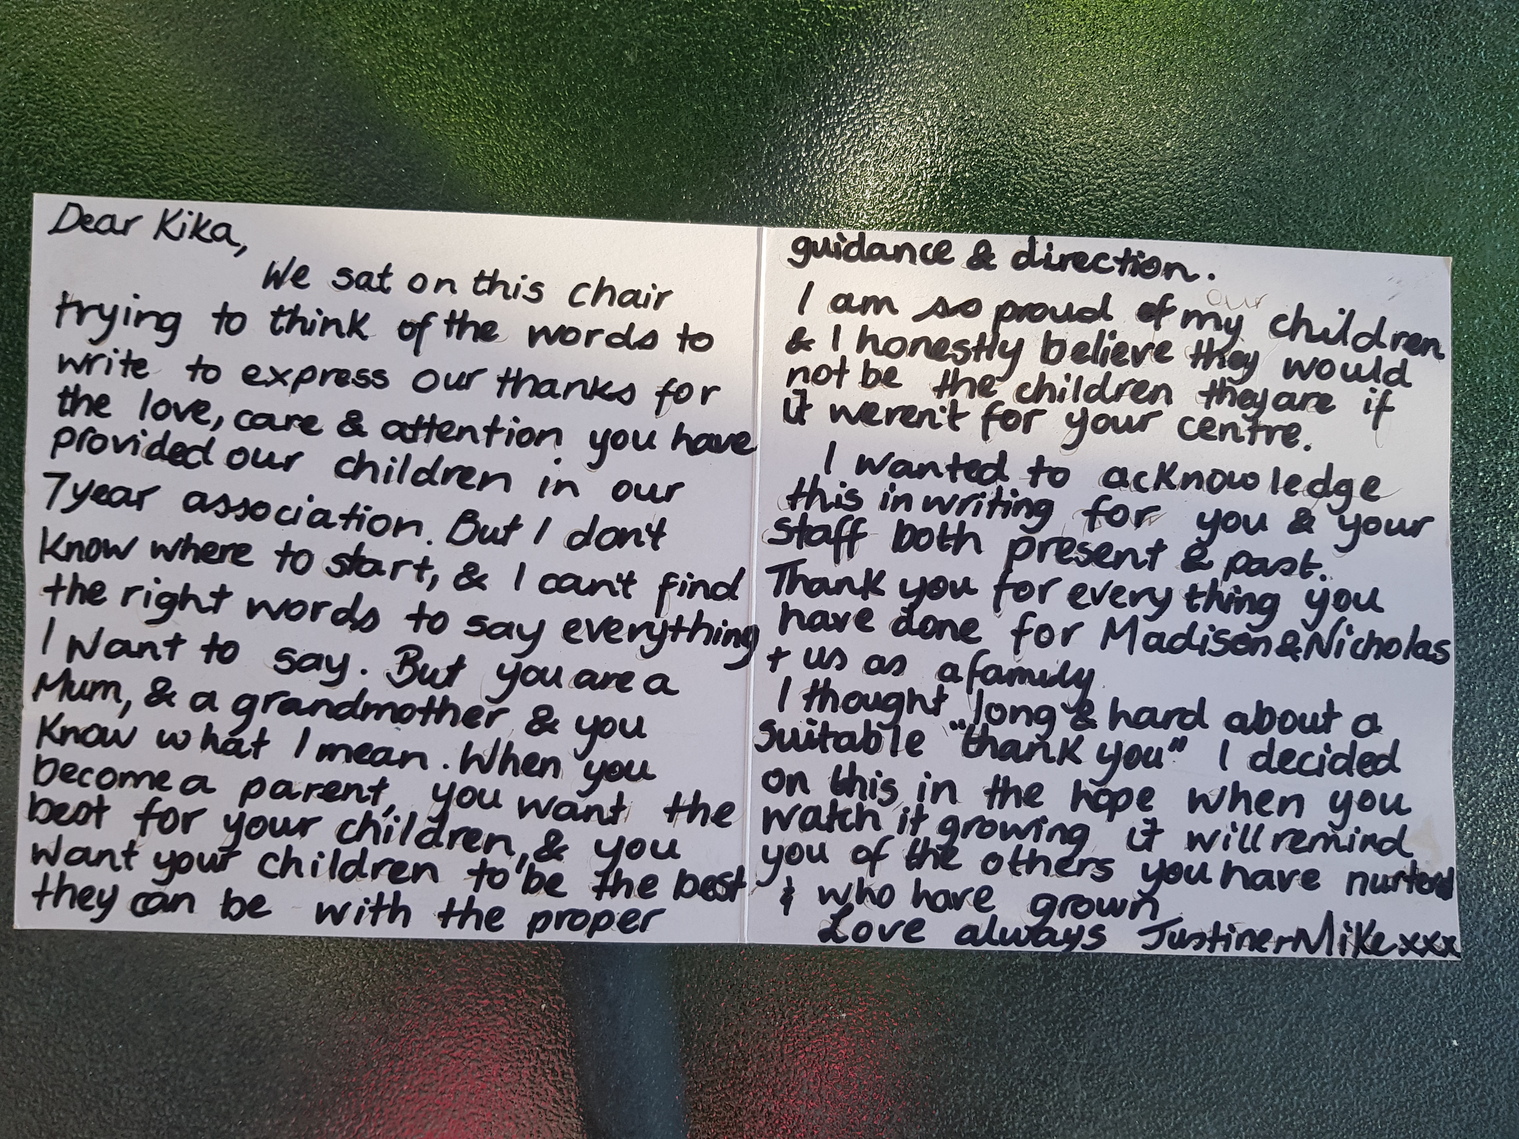 Dear Kika,
We sat on this chair
trying to think of the words to
write to express our thanks for
the love, care & attention you have
provided our children in our
7 year association. But I don't
Know where to start, & I can't find
the right words to say everything
I want to say. But you are a
Mum, & a grandmother & you
Know what I mean. When you
become a parent, you want the
best for your children, & you
want your children to be the best
they can be with the proper
guidance & direction.
our
I am so proud of my children
& I honestly believe they would
not be the children they are if
it weren't for your centre.
I wanted to acknowledge
this in writing for you & your
staff both present & past.
Thank you for everything you
have done for Madison & Nicholas
+ us as a family.
I thought long & hard about a
suitable "thank you" I decided
on this, in the hope when you
watch it growing it will remind
you of the others you have
& who have grown
Love always Justine + Mike xxx